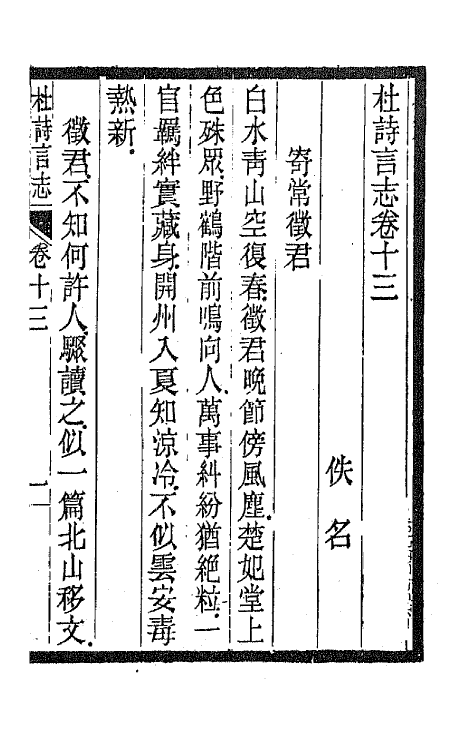 杜詩言志卷十三
佚名
寄常徵君
白水靑山空復春徵君晚節傍風塵楚妃堂上
色殊眾野鶴階前鳴向人萬事糾紛猶絶粒一
官羈絆實藏身開州入夏知涼冷不似雲安毒
熱新
徵君不知何許人驟讀之似一篇北山移文
杜詩言志 卷十三 一